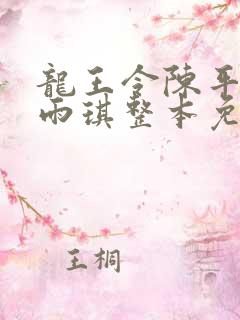 龍王令陳平
雨琪整本免
王桐